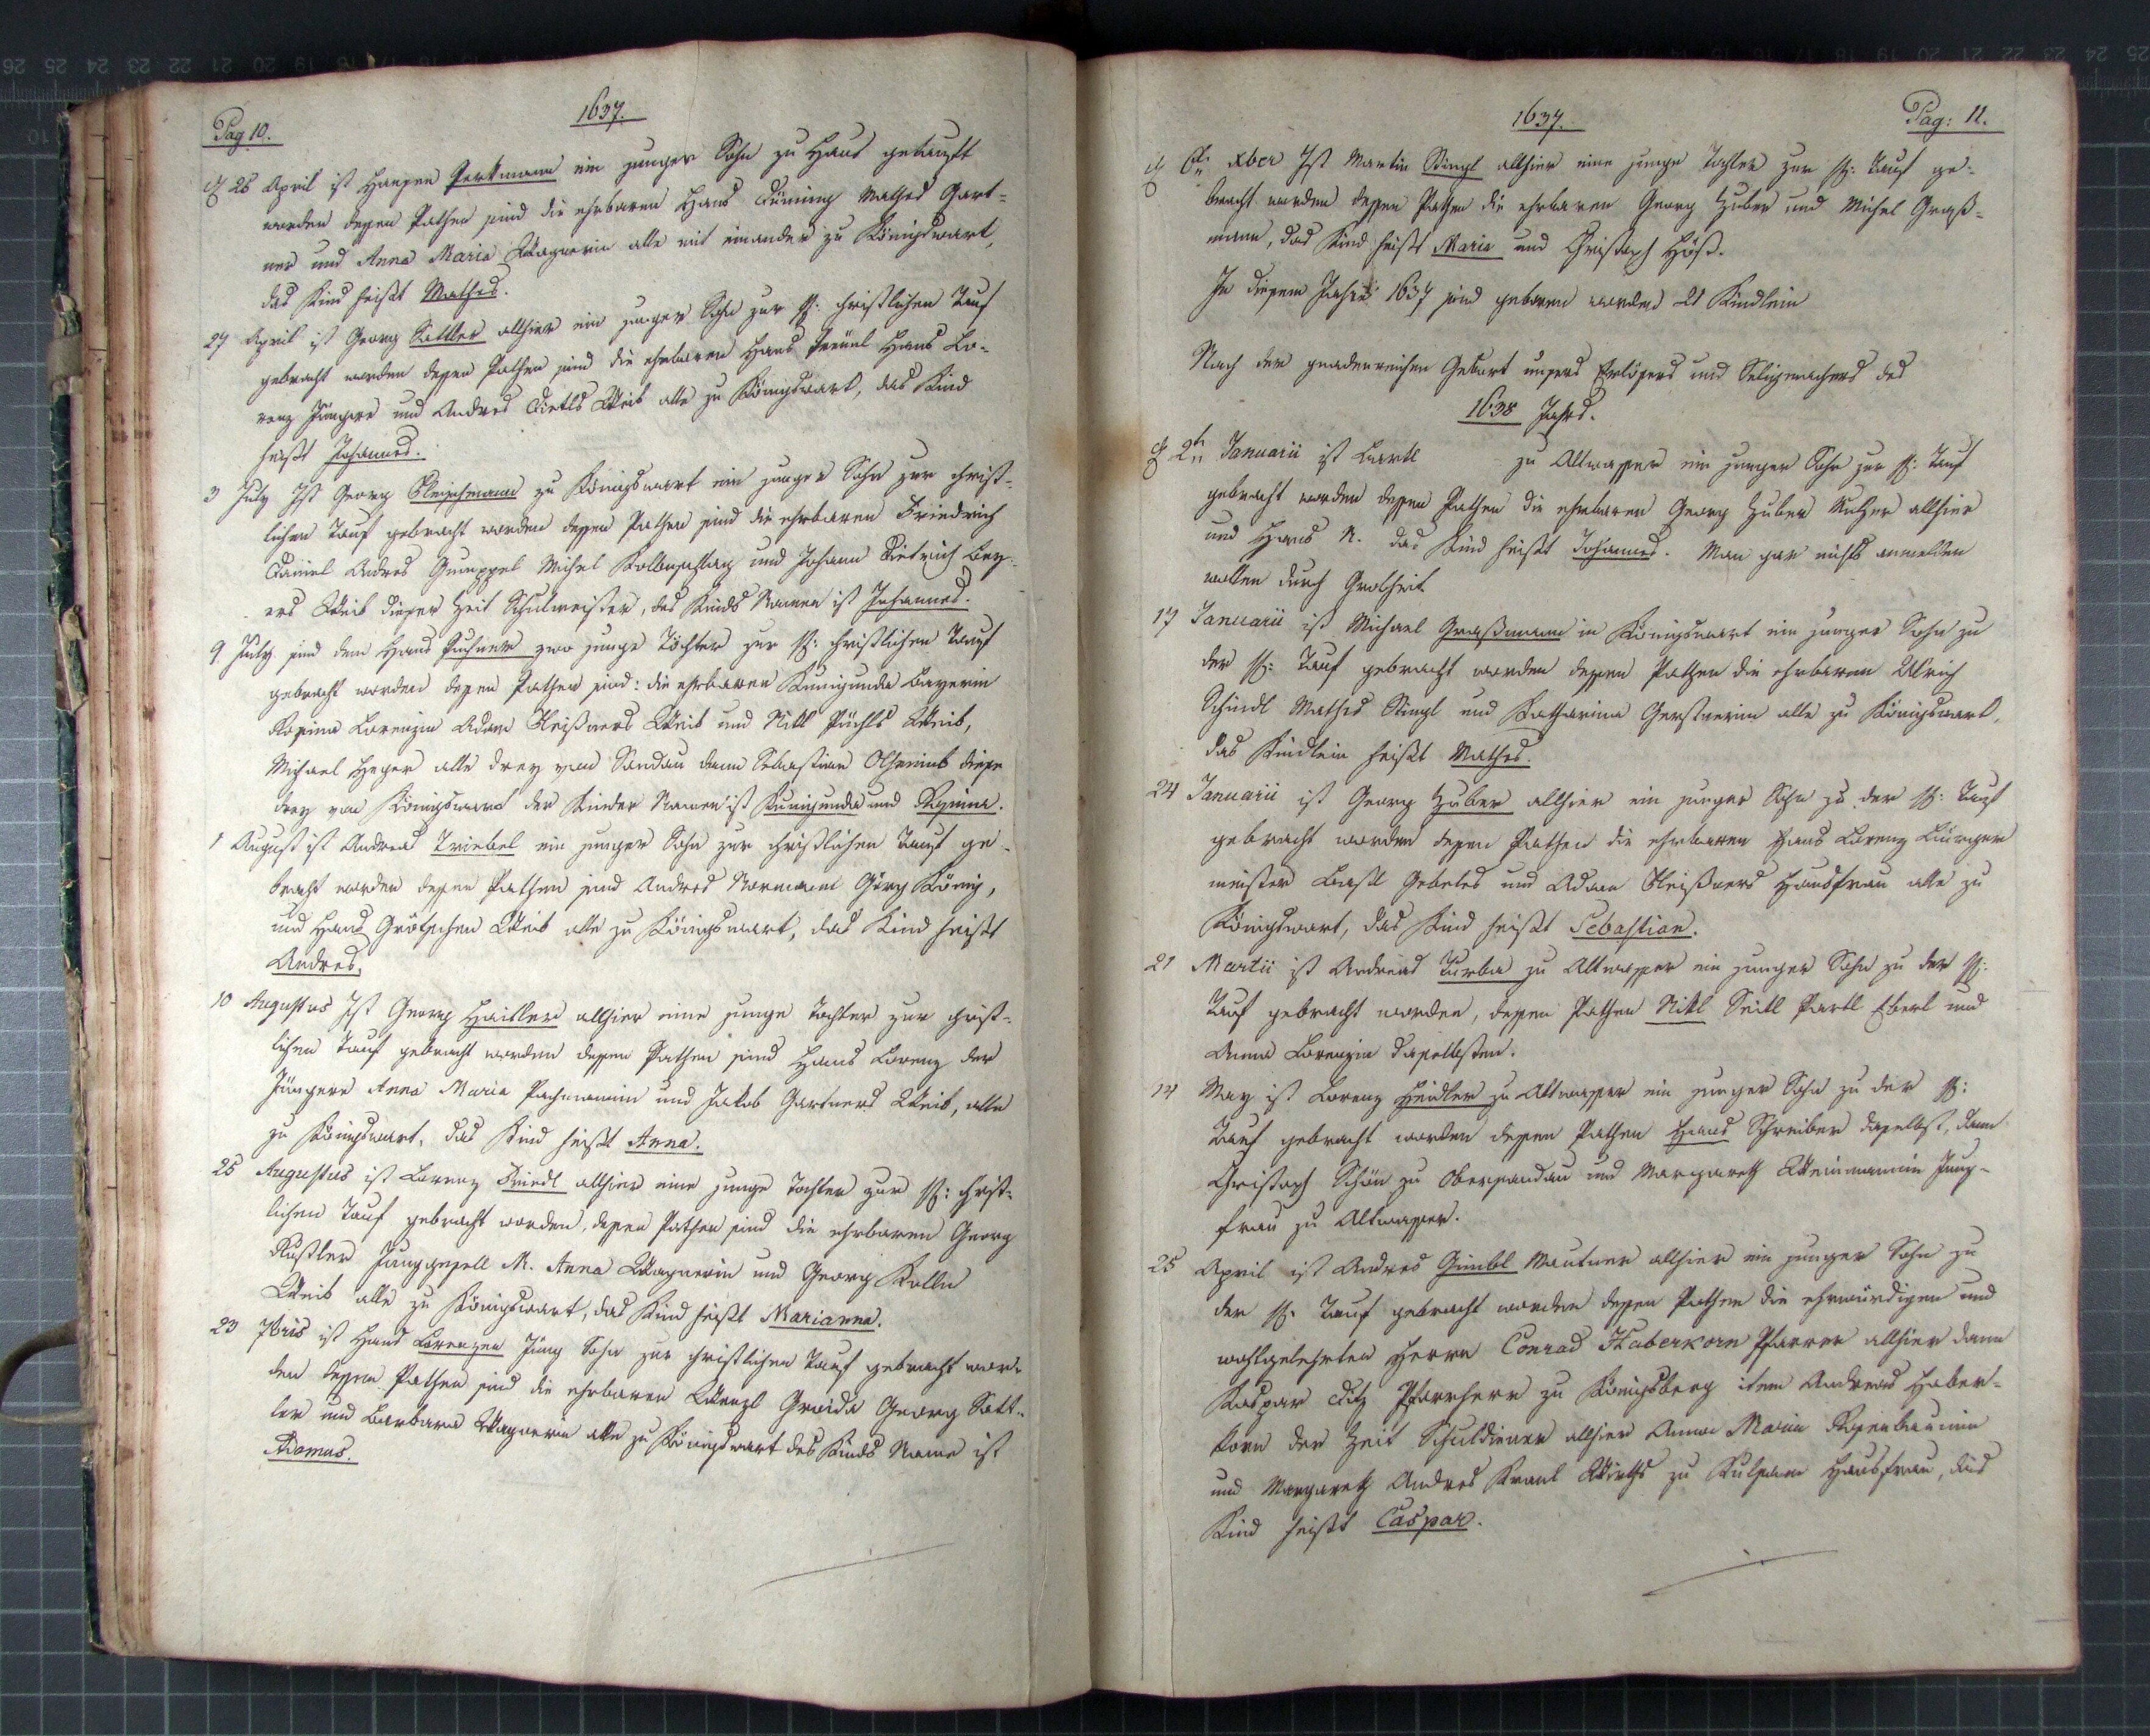 Pag 10.
1637.
26 April ist Hansen Perkmann ein junger Sohn zu Haus getauft
worden dessen Pathen sind die ehrbaren Hans Mathes Gart-
ner und Anna Maria Wagnerin alle mit einander zu Königswart,
das Kind heißt Mathes.
27 April ist Georg Sattler allhier ein junger Sohn zur h: christlichen Tauf
gebracht worden dessen Pathen sind die ehrbaren Hans Hans Lo-
renz Jüngere und Andres Dietls Weib alle zu Königswart, das Kind
heißt Johannes.
3 July Ist Georg Fleischmann zu Königswart ein junger Sohn zur christ-
lichen Tauf gebracht worden dessen Pathen sind die ehrbaren Friedrich
Daniel Andres Gumppel Michel Kolbenschlag und Johann Dietrich Bey-
ers Weib dieser Zeit Schulmeister, des Kinds Namen ist Johannes.
9 July sind dem Hans Puchner zwo junge Töchter zur h: christlichen Tauf
gebracht worden dessen Pathen sind: die ehrbaren Kunigunda Bayerin
Rosina Lorenzin Adam Fleißners Weib und Nikl Püchls Weib,
Michael Heger alle drey von Sandau dann Sebastian diese
drey von Königswart der Kinder Namen ist Kunigunda und Rosina.
1 August ist Andreas Triebel ein junger Sohn zur christlichen Tauf ge-
bracht worden dessen Pathen sind Andres Normann Görg König,
und Hans Grötschen Weib alle zu Königswart, das Kind heißt
Andres.
10 Augustus Ist Georg Haitler allhier eine junge Tochter zur christ-
lichen Tauf gebracht worden dessen Pathen sind Hans Lorenz der
Jüngere Anna Maria Pachmannin und Jakob Gartners Weib, alle
zu Königswart, das Kind heißt Anna.
25 Augustus ist Lorenz Friedl allhier eine junge Tochter zur h: christ-
lichen Tauf gebracht worden, dessen Pathen sind die ehrbaren Georg
Rustler Junggesell M. Anna Wagnerin und Georg Kolln
Weib alle zu Königswart, das Kind heißt Marianna.
23 7bris ist Hans Lorenzen Jung Sohn zur christlichen Tauf gebracht wor-
den dessen Pathen sind die ehrbaren Wenzl Georg Satt-
ler und Barbara Wagnerin alle zu Königswart des Kinds Name ist
Adamus.
1637.
Pag: 11.
6t xber Ist Martin Stingl allhier eine junge Tochter zur h: Tauf ge-
bracht worden dessen Pathen die ehrbaren Georg Huber und Michel Graß-
mann, das Kind heißt Maria und Christoph Höß.
In diesem Jahre 1637 sind geboren worden 21 Kindlein
Nach der gnadenreichen Geburt unsers Erlösers und Seligmachers des
1638 Jahrs.
2tn Januarii ist Bartl zu Altwasser ein junger Sohn zur h: Tauf
gebracht worden dessen Pathen die ehrbaren Georg Huber allhier
und Hans N. das Kind heißt Johannes. Man gar nichts anmelden
wollen durch Grobheit
17 Januarii ist Michael Graßmann in Königswart ein junger Sohn zu
der h: Tauf gebracht worden dessen Pathen die ehrbaren Ulrich
Schindl Mathes Stingl und Katharina Gerstnerin alle zu Königswart,
das Kindlein heißt Mathes.
24 Januarii ist Georg Huber allhier ein junger Sohn zu der h: Tauf
gebracht worden dessen Pathen die ehrbaren Hans Lorenz Bürger
meister Bastl Gebeles und Adam Fleißners Hausfrau alle zu
Königswart, das Kind heißt Sebastian.
21 Martii ist Andreas Turba zu Altwasser ein junger Sohn zu der h:
Tauf gebracht worden, dessen Pathen Nikl Seitl Partl Eberl und
Anna Lorenzin daselbsten.
14 May ist Lorenz Heidler zu Altwasser ein junger Sohn zu der h:
Tauf gebracht worden dessen Pathen Hans Schreiber daselbst, dann
Christoph Schön zu Obersandau und Margareth Weinmannin Jung-
frau zu Altwasser.
25 April ist Andres Gumbl Mautner allhier ein junger Sohn zu
der h: Tauf gebracht worden dessen Pathen die ehrwürdigen und
wohlgelehrten Herrn Conrad Haberkorn Pfarrer allhier dann
Kaspar Pfarrherr zu Königsberg item Andreas Haber-
korn der Zeit Schuldiener allhier Anna Maria Rosenbaumin
und Margareth Andres Kraul Wirths zu Hausfrau, das
Kind heißt Caspar.